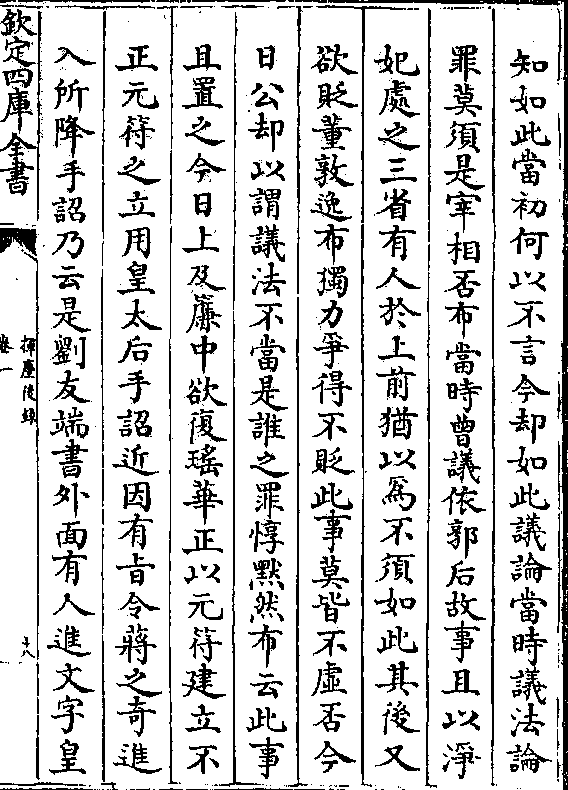 知如此當初何以不言今却如此議論當時議法論
罪莫須是宰相否布當時曾議依郭后故事且以淨
妃處之三省有人於上前猶以為不須如此其後又
欲貶董敦逸布獨力爭得不貶此事莫皆不虚否今
日公却以謂議法不當是誰之罪惇黙然布云此事
且置之今日上及簾中欲復瑤華正以元符建立不
正元符之立用皇太后手詔近因有旨令蔣之奇進
入所降手詔乃云是劉友端書外面有人進文字皇
欽定四庫全書
揮麈後録
卷一
十八